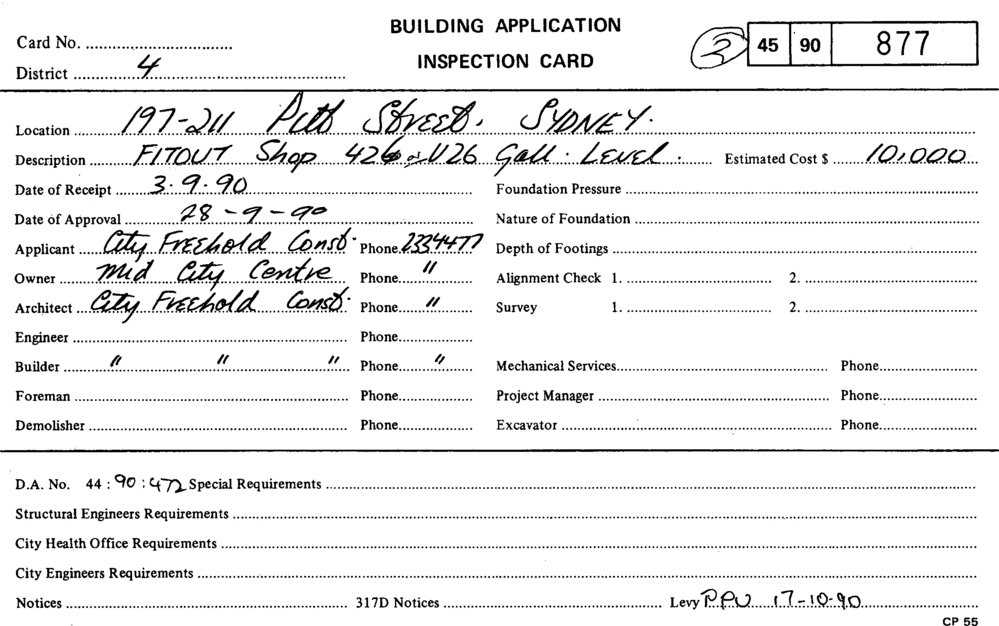 BUILDING APPLICATION
INSPECTION CARD
Card No.
District 4
3 45 90 877
Location 197-211 Pitt Street. SYDNEY.
Description FITOUT Shop 426 U26 Gall. LEVEL. Estimated Cost $ 10,000
Date of Receipt 3.9.90 Foundation Pressure
Date of Approval 28-9-90 Nature of Foundation
Applicant City Freehold Const. Phone 2334477 Depth of Footings
Owner Mid City Centre Phone " Alignment Check 1. 2.
Architect City Freehold Const. Phone " Survey 1. 2.
Engineer Phone
Builder " " " Phone " Mechanical Services Phone
Foreman Phone Project Manager Phone
Demolisher Phone Excavator Phone
D.A. No. 44 : 90 : 472 Special Requirements
Structural Engineers Requirements
City Health Office Requirements
City Engineers Requirements
Notices 317D Notices Levy 17-10-90
CP 55